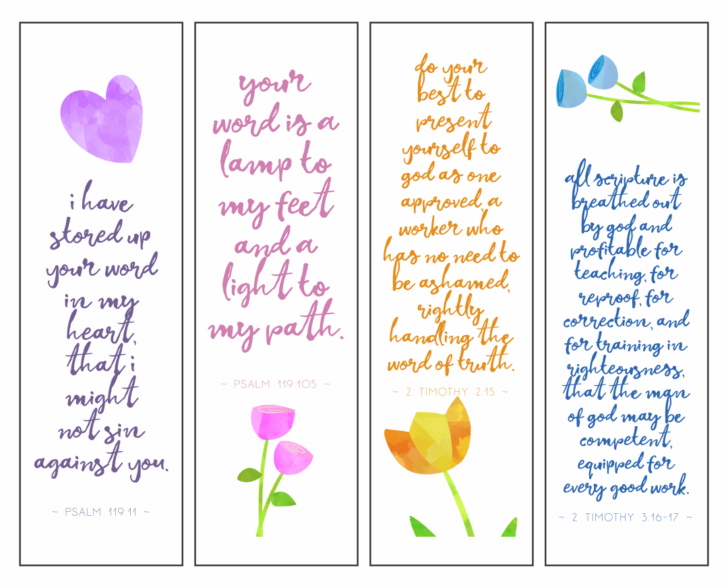 i have
stored up
your word
in my
heart,
that i
might
not sin
against you.
~ PSALM 119:11 ~
your
word is a
lamp to
my feet
and a
light to
my path.
~ PSALM 119:105 ~
do your
best to
present
yourself to
god as one
approved, a
worker who
has no need to
be ashamed,
rightly
handling the
word of truth.
~ 2 TIMOTHY 2:15 ~
all scripture is
breathed out
by god and
profitable for
teaching, for
reproof, for
correction, and
for training in
righteousness,
that the man
of god may be
competent,
equipped for
every good work.
~ 2 TIMOTHY 3:16-17 ~